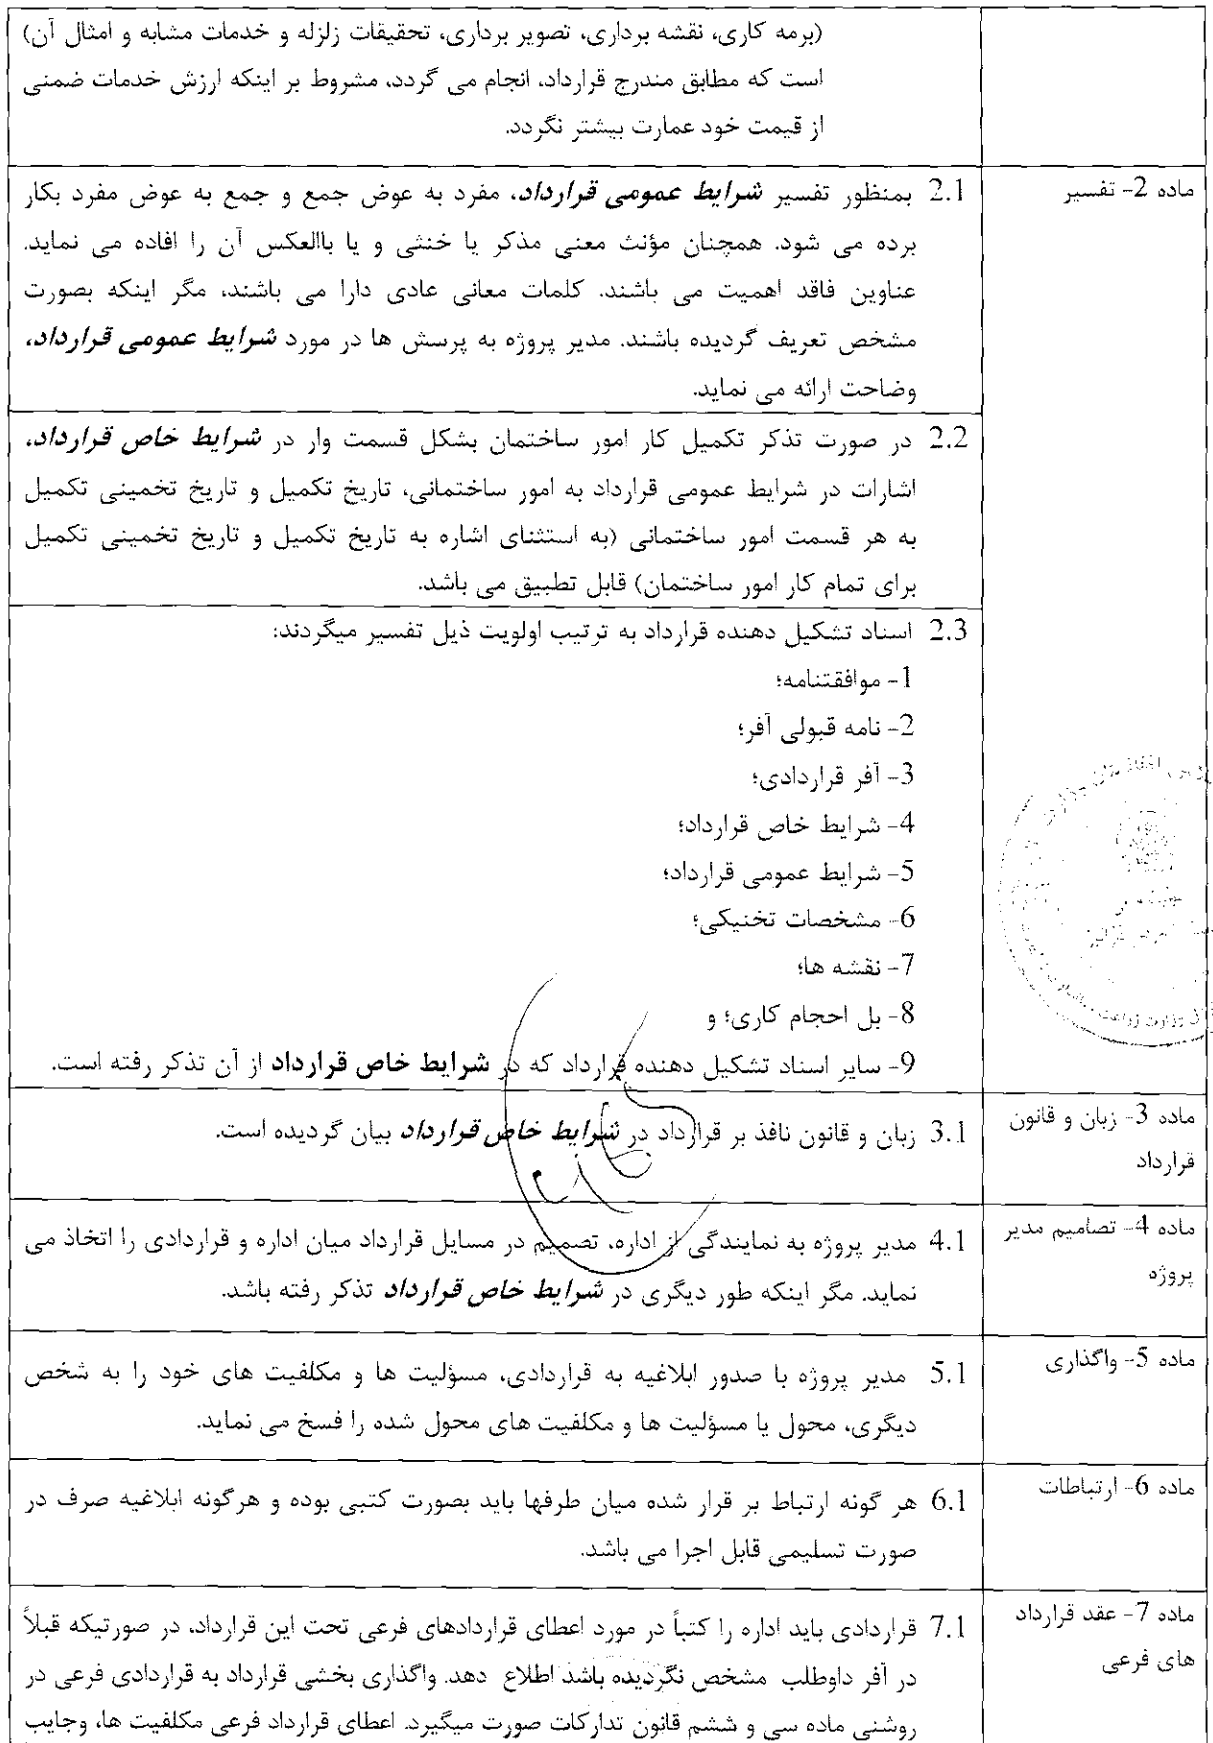 (برمه کاری، نقشه برداری، تصویر برداری، تحقیقات زلزله و خدمات مشابه و امثال آن)
است که مطابق مندرج قرارداد، انجام می گردد، مشروط بر اینکه ارزش خدمات ضمنی
از قیمت خود عمارت بیشتر نگردد.
ماده 2- تفسیر
2.1 بمنظور تفسیر شرایط عمومی قرارداد، مفرد به عوض جمع و جمع به عوض مفرد بکار
برده می شود. همچنان مؤنث معنی مذکر یا خنثی و یا باالعکس آن را افاده می نماید.
عناوین فاقد اهمیت می باشند. کلمات معانی عادی دارا می باشند، مگر اینکه بصورت
مشخص تعریف گردیده باشند. مدیر پروژه به پرسش ها در مورد شرایط عمومی قرارداد،
وضاحت ارائه می نماید.
2.2 در صورت تذکر تکمیل کار امور ساختمان بشکل قسمت وار در شرایط خاص قرارداد،
اشارات در شرایط عمومی قرارداد به امور ساختمانی، تاریخ تکمیل و تاریخ تخمینی تکمیل
به هر قسمت امور ساختمانی (به استثنای اشاره به تاریخ تکمیل و تاریخ تخمینی تکمیل
برای تمام کار امور ساختمان) قابل تطبیق می باشد.
2.3 اسناد تشکیل دهنده قرارداد به ترتیب اولویت ذیل تفسیر میگردند:
1- موافقتنامه؛
2- نامه قبولی آفر؛
3- آفر قراردادی؛
4- شرایط خاص قرارداد؛
5- شرایط عمومی قرارداد؛
6- مشخصات تخنیکی؛
7- نقشه ها؛
8- بل احجام کاری؛ و
9- سایر اسناد تشکیل دهنده قرارداد که در شرایط خاص قرارداد از آن تذکر رفته است.
ماده 3- زبان و قانون
قرارداد
3.1 زبان و قانون نافذ بر قرارداد در شرایط خاص قرارداد بیان گردیده است.
ماده 4- تصامیم مدیر
پروژه
4.1 مدیر پروژه به نمایندگی از اداره، تصمیم در مسایل قرارداد میان اداره و قراردادی را اتخاذ می
نماید. مگر اینکه طور دیگری در شرایط خاص قرارداد تذکر رفته باشد.
ماده 5- واگذاری
5.1 مدیر پروژه با صدور ابلاغیه به قراردادی، مسؤلیت ها و مکلفیت های خود را به شخص
دیگری، محول یا مسؤلیت ها و مکلفیت های محول شده را فسخ می نماید.
ماده 6- ارتباطات
6.1 هر گونه ارتباط بر قرار شده میان طرفها باید بصورت کتبی بوده و هرگونه ابلاغیه صرف در
صورت تسلیمی قابل اجرا می باشد.
ماده 7- عقد قرارداد
های فرعی
7.1 قراردادی باید اداره را کتباً در مورد اعطای قراردادهای فرعی تحت این قرارداد، در صورتیکه قبلاً
در آفر داوطلب مشخص نگردیده باشد اطلاع دهد. واگذاری بخشی قرارداد به قراردادی فرعی در
روشنی ماده سی و ششم قانون تدارکات صورت میگیرد. اعطای قرارداد فرعی مکلفیت ها، وجایب